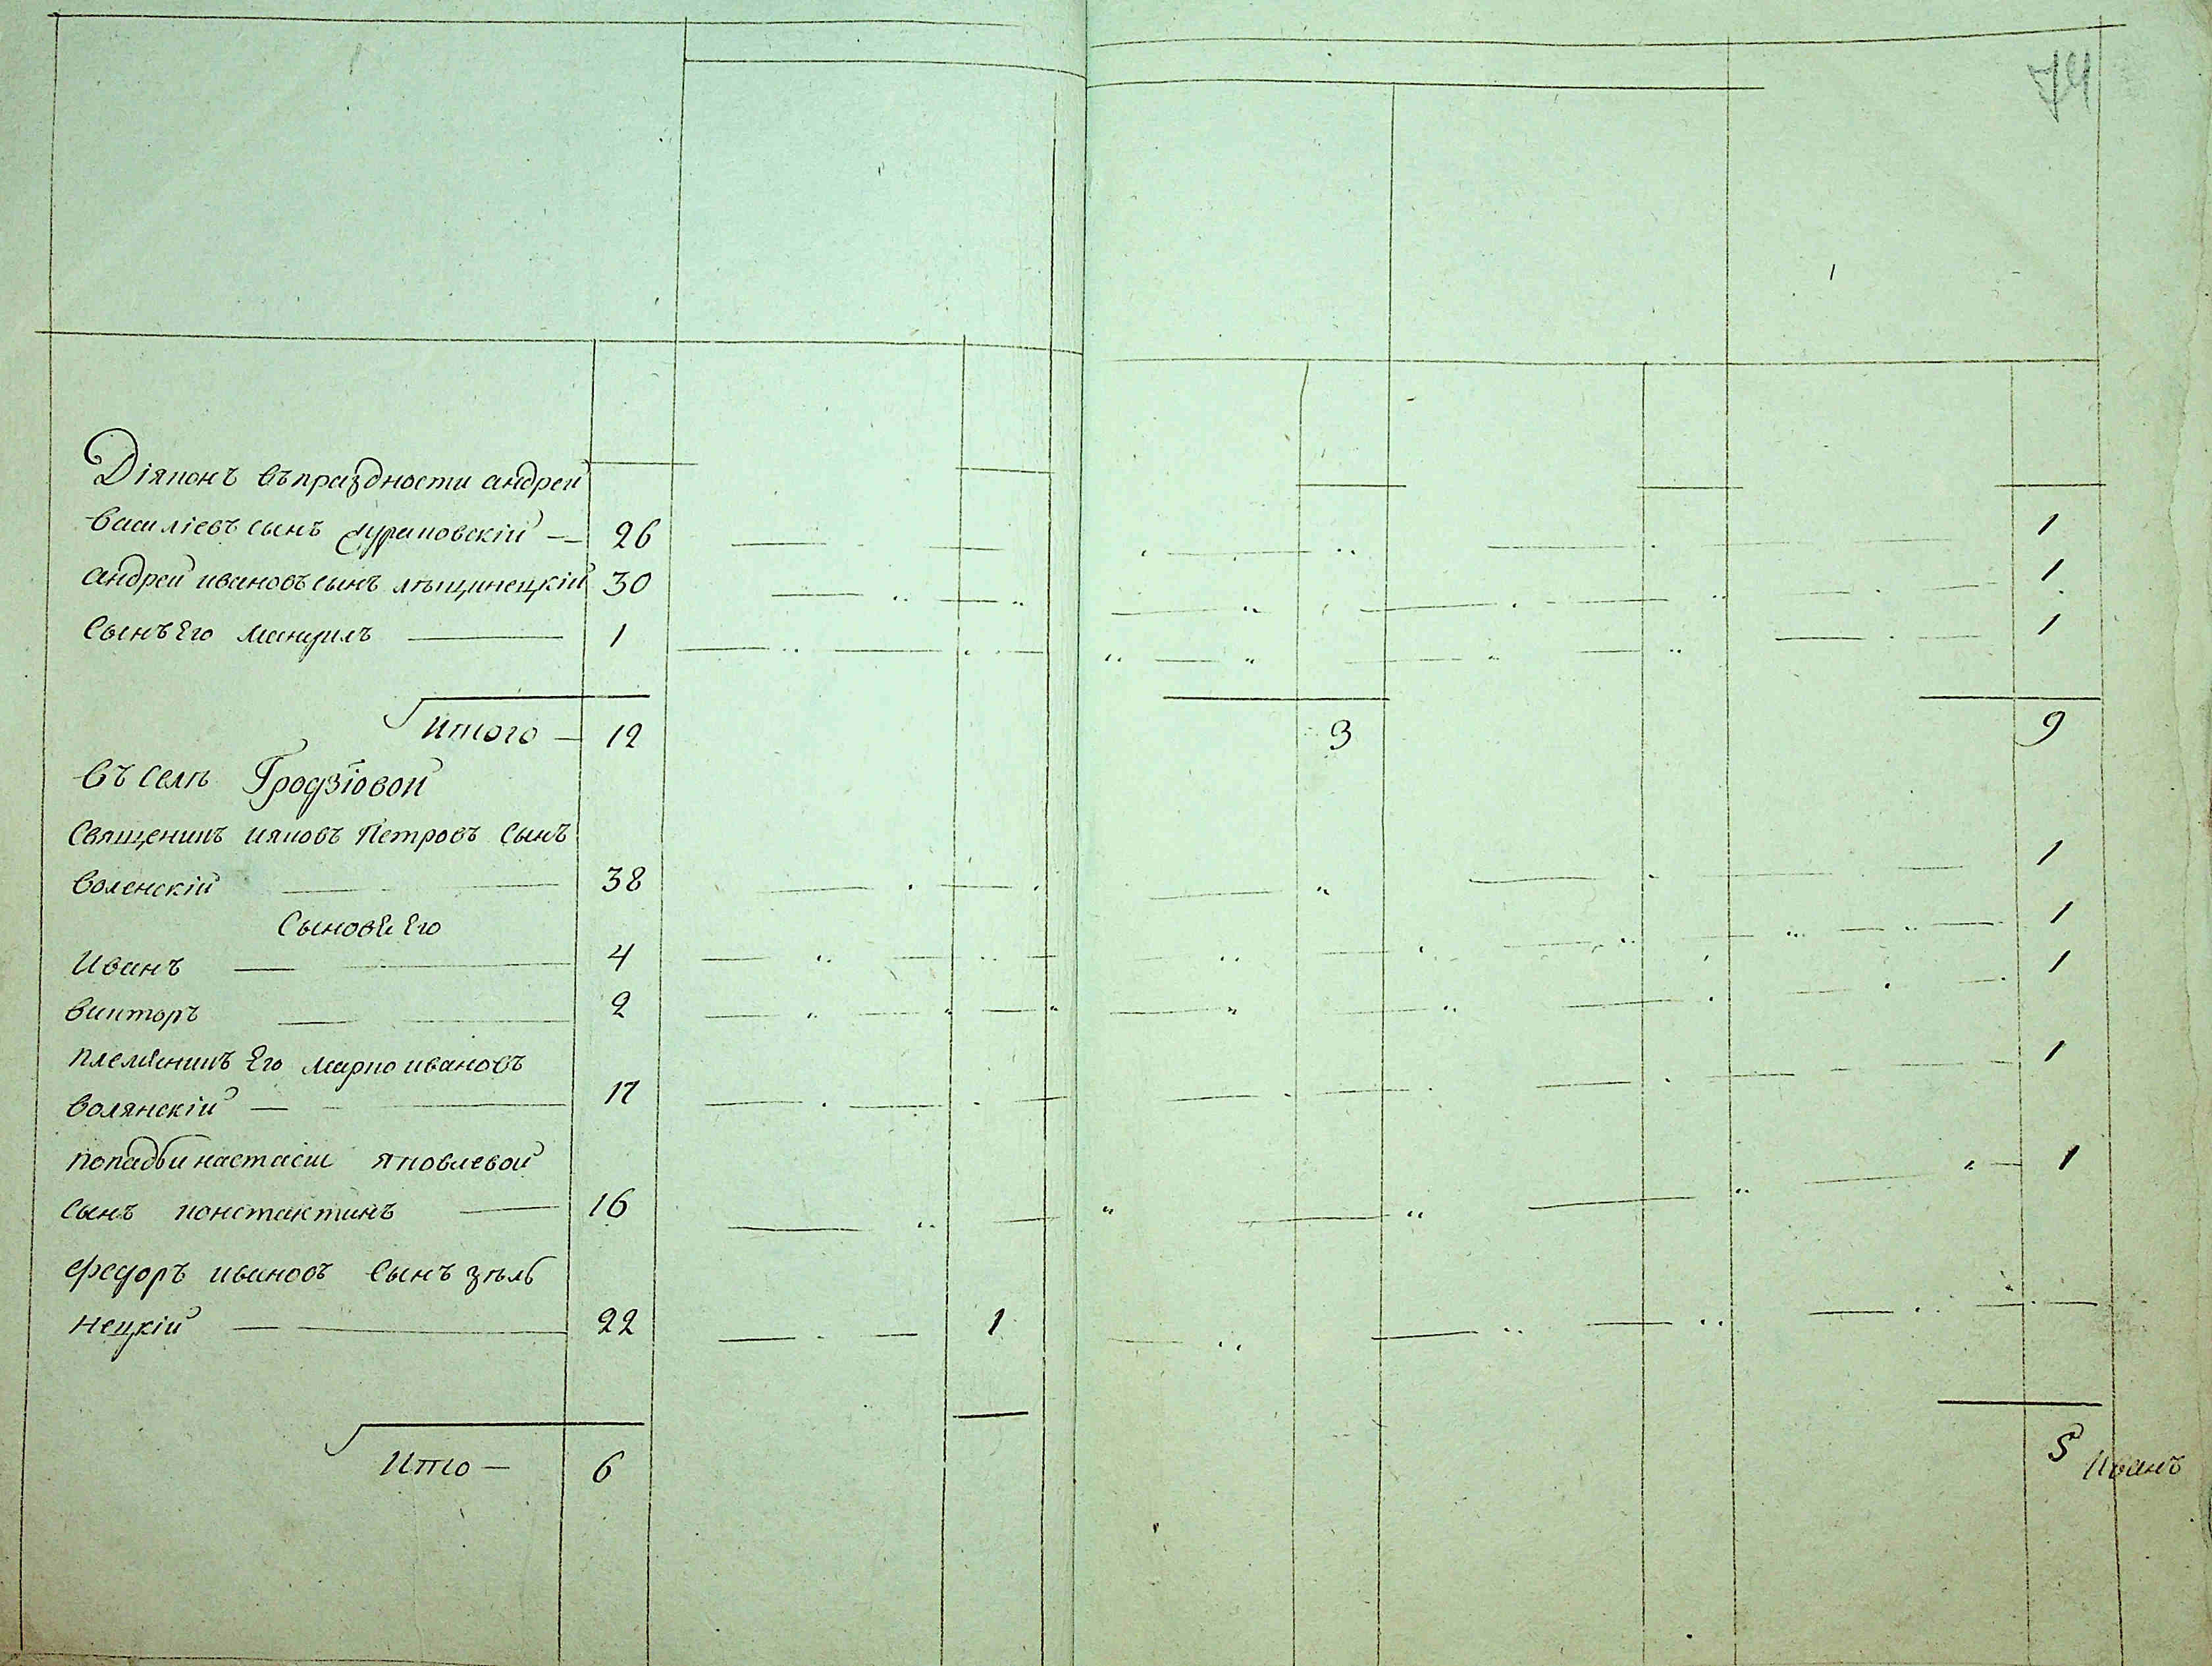 74
Діяконъ въ праздности андреи
василіевъ сынъ Зураковскій — 26 1
андреи ивановъ сынъ лѣщинецкій 30 1
Сынъ Его мануилъ — 1 1
Итого — 12 3 9
въ селѣ Гродзіовой
Священикъ ияковъ Петровъ Сынъ
воленскій — 38 1
Сыновѣ Его
Иванъ — 4 1
викторъ — 2 1
племѣникъ Его марко ивановъ
волянскій — 17 1
попадьи настасіи яковлевой
сынъ константинъ — 16 1
федоръ ивановъ сынъ зѣль
нецкій — 22 1
Итго — 6 5
Иванъ